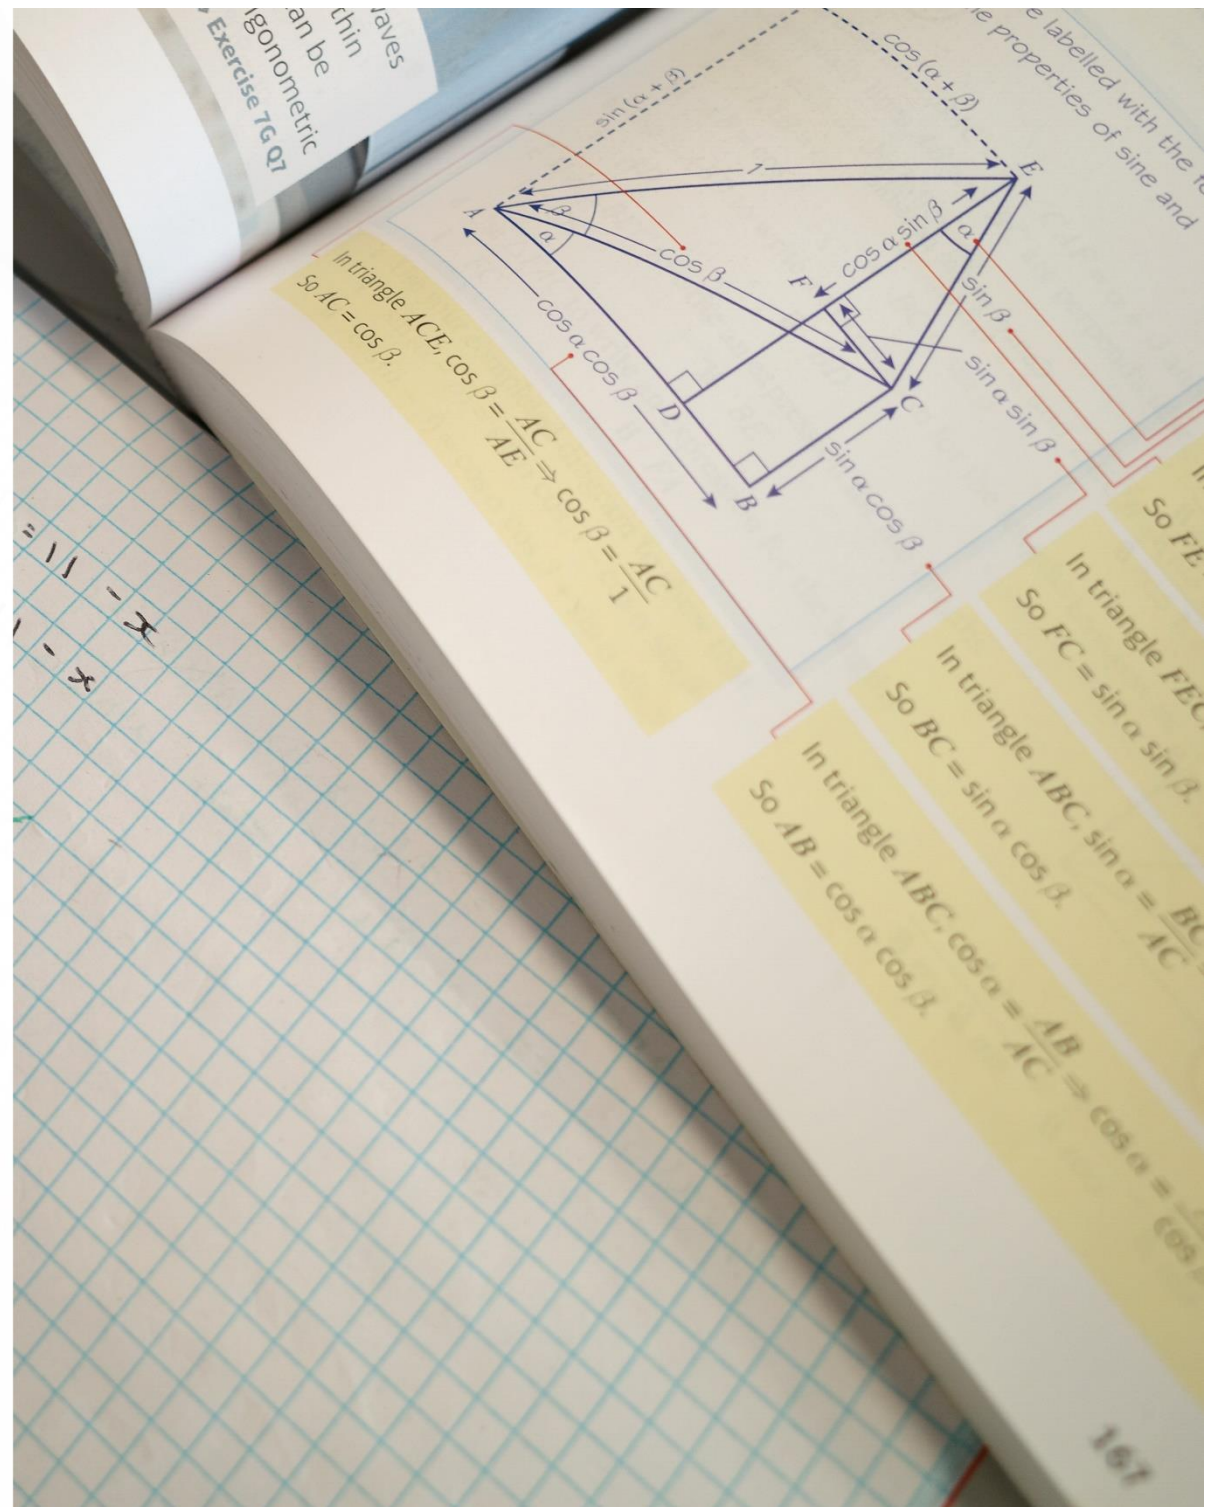 waves
thin
an be
gonometric
Exercise 7G Q7
e labelled with the
e properties of sine and
sin (α + β)
cos (α + β)
1
A
E
β
α
cos β
cos α sin β
α
F
sin β
cos α cos β
sin α sin β
D
C
B
sin α cos β
In triangle ACE, cos β = AC/AE ⇒ cos β = AC/1
So AC = cos β.
So FE
In triangle FEC,
So FC = sin α sin β.
In triangle ABC, sin α = BC/AC
So BC = sin α cos β.
In triangle ABC, cos α = AB/AC ⇒ cos α =
So AB = cos α cos β.
167
= 11 - x
- x